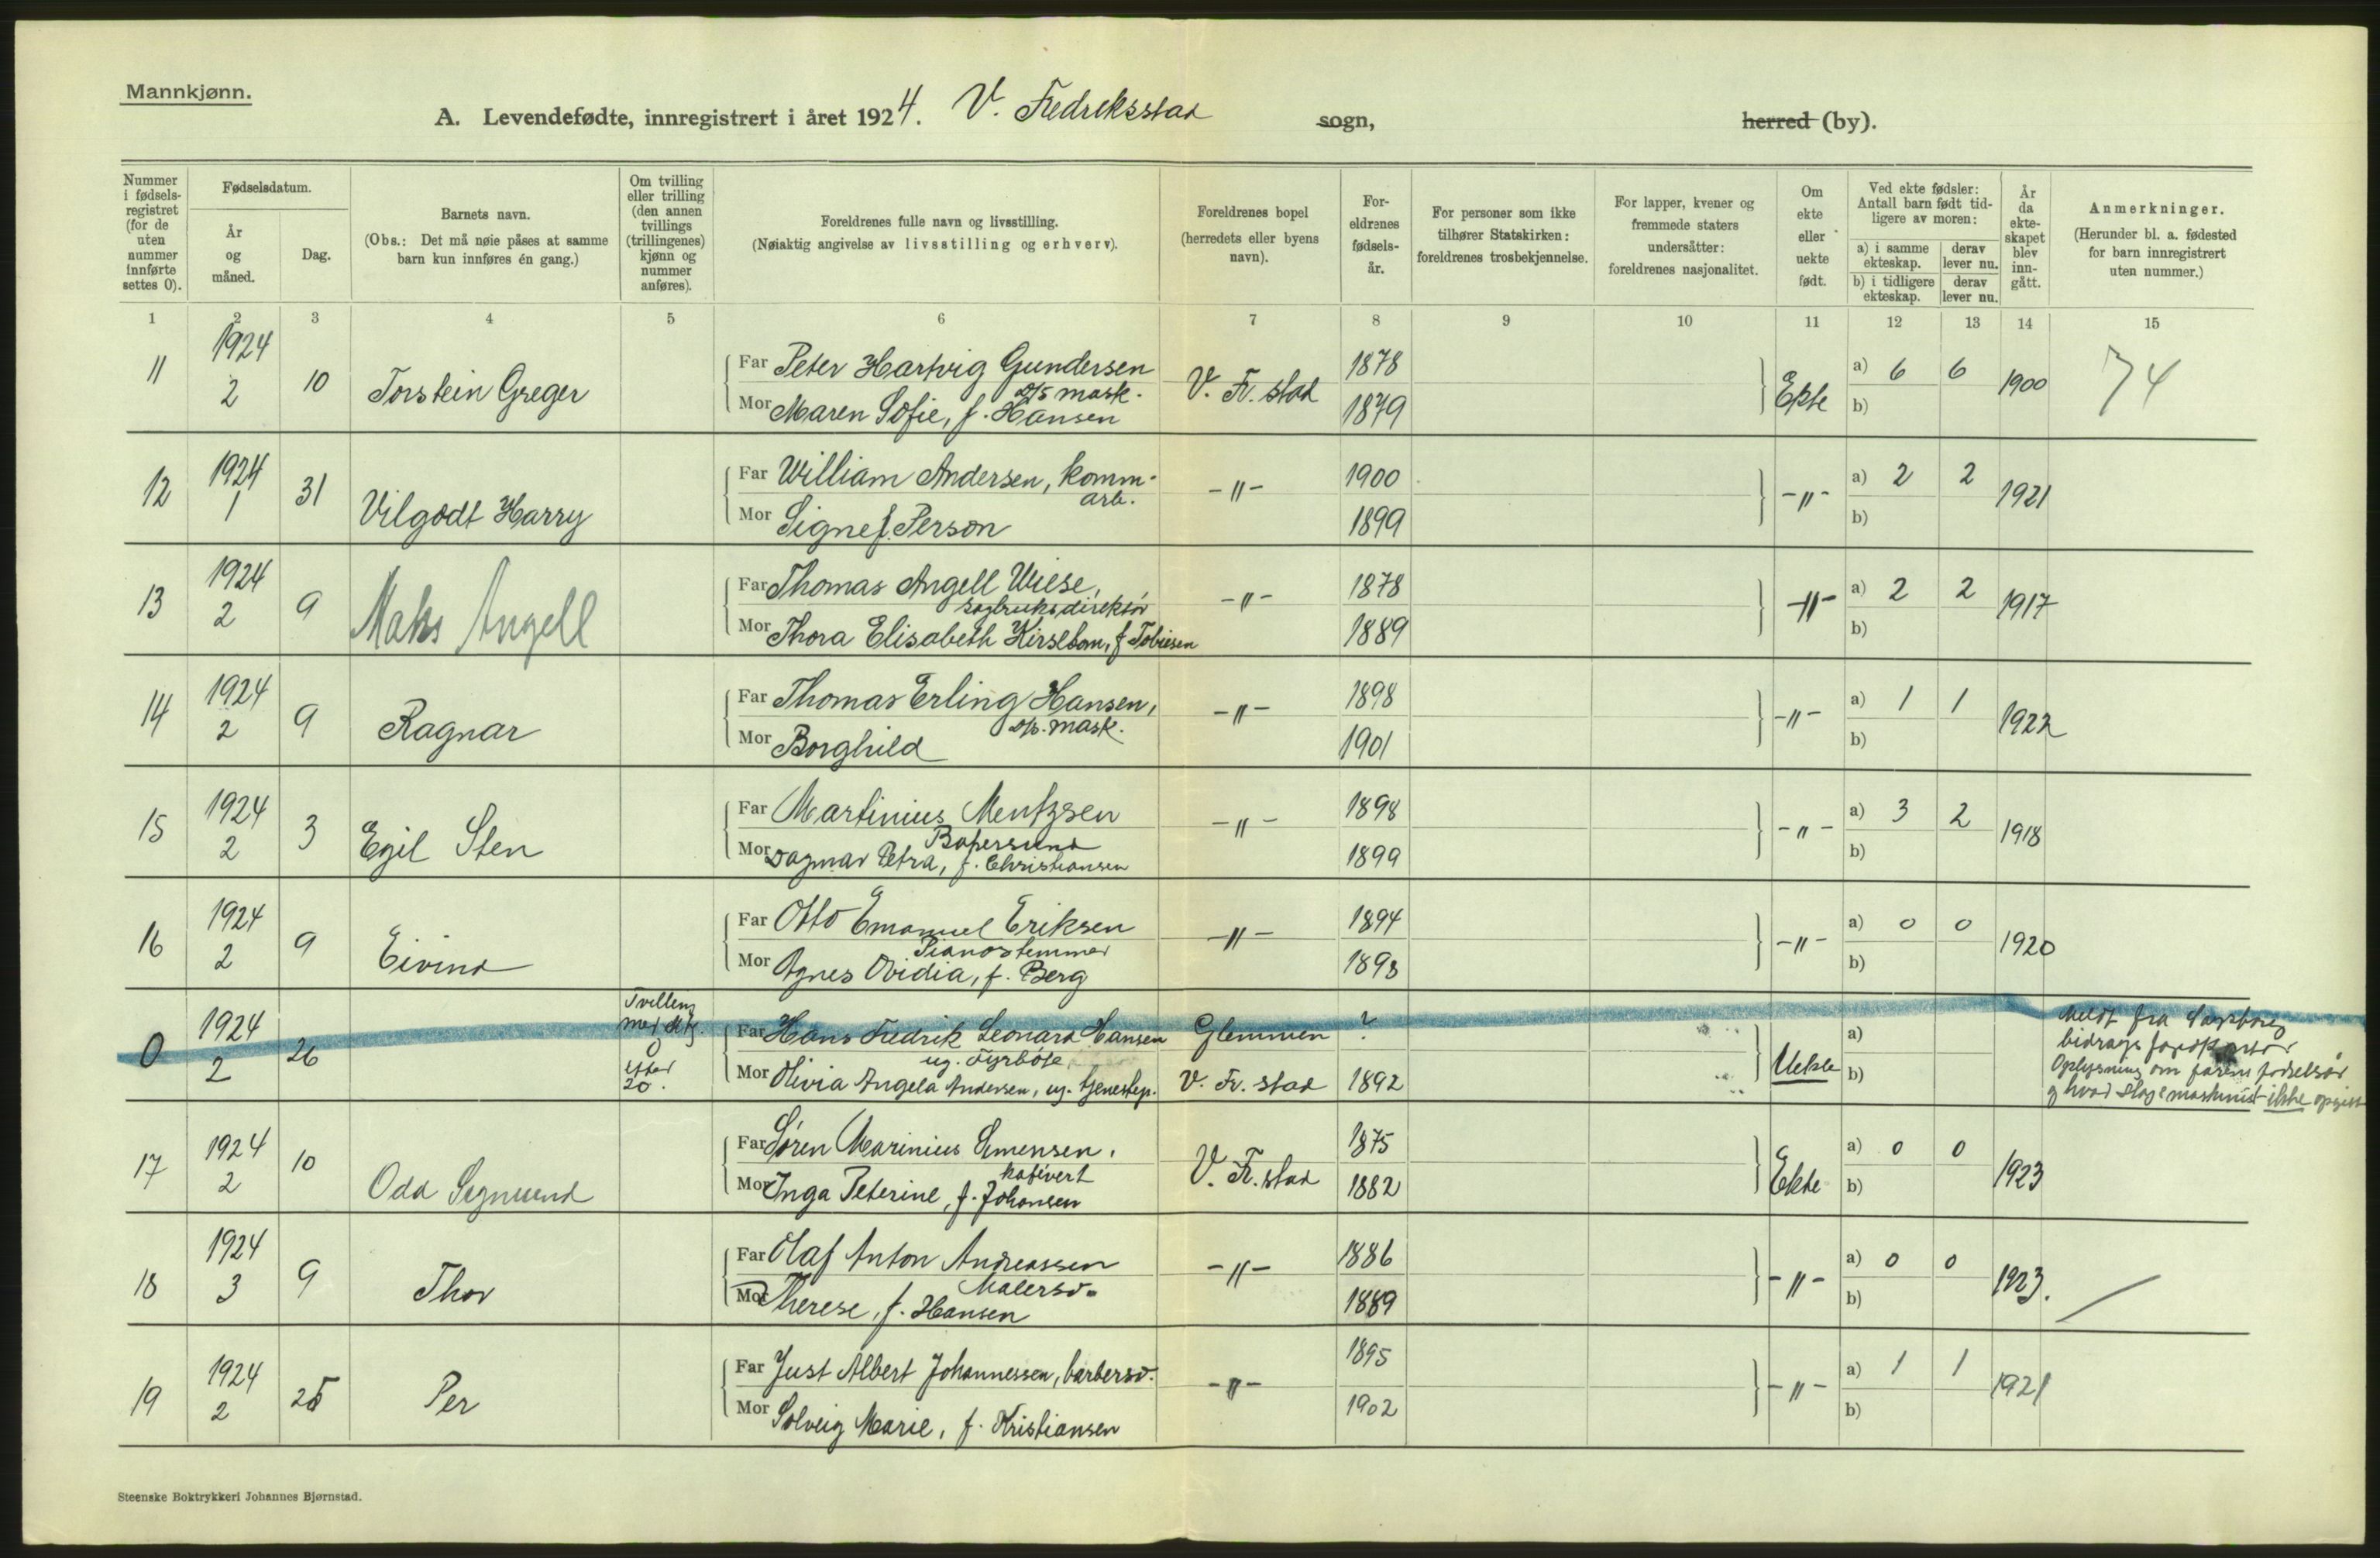 Mannkjønn.
A. Levendefødte, innregistrert i året 1924. V. Fredriksstad sogn, herred (by).
Nummer i fødsels-registret (for de uten nummer innførte settes 0).
Fødselsdatum.
År og måned.
Dag.
Barnets navn.
(Obs.: Det må nøie påses at samme barn kun innføres én gang.)
Om tvilling eller trilling (den annen tvillings (trillingenes) kjønn og nummer anføres).
Foreldrenes fulle navn og livsstilling.
(Nøiaktig angivelse av livsstilling og erhverv).
Foreldrenes bopel (herredets eller byens navn).
For-eldrenes fødsels-år.
For personer som ikke tilhører Statskirken: foreldrenes trosbekjennelse.
For lapper, kvener og fremmede staters undersåtter: foreldrenes nasjonalitet.
Om ekte eller uekte født.
Ved ekte fødsler: Antall barn født tid-ligere av moren:
a) i samme ekteskap. derav lever nu.
b) i tidligere ekteskap. derav lever nu.
År da ekte-skapet blev inn-gått.
Anmerkninger.
(Herunder bl. a. fødested for barn innregistrert uten nummer.)
1 2 3 4 5 6 7 8 9 10 11 12 13 14 15
11 1924 2 10 Torstein Greger
Far Peter Hartvig Gundersen D/S mask. V. Fr.stad 1878 Ekte a) 6 6 1900 74
Mor Maren Sofie, f. Hansen 1879 b)
12 1924 1 31 Vilgodt Harry
Far William Andersen, komm. arb. -"- 1900 -"- a) 2 2 1921
Mor Signe f. Person 1899 b)
13 1924 2 9 Maks Angell
Far Thomas Angell Wiese, sagbruksdirektør -"- 1878 -"- a) 2 2 1917
Mor Thora Elisabeth Kirsebom, f Tobiesen 1889 b)
14 1924 2 9 Ragnar
Far Thomas Erling Hansen, D/p. mask. -"- 1898 -"- a) 1 1 1922
Mor Borghild 1901 b)
15 1924 2 3 Egil Sten
Far Martinius Mentzsen -"- 1898 -"- a) 3 2 1918
Mor Dagmar Petra, f. Christiansen 1899 b)
16 1924 2 9 Eivind
Far Otto Emanuel Eriksen Pianostemmer -"- 1894 -"- a) 0 0 1920
Mor Agnes Ovidia, f. Berg 1893 b)
0 1924 2 26 Tvilling med efter 20.
Far Hans Fredrik Leonard Hansen ug. Fyrbøte Glemmen ? Uekte a)
Mor Olivia Angela Andersen, ug. tjenestep. V. Fr. stad 1892 b)
Meldt fra Sarpsborg
bidrags
Oplysning om farens fødselsår
og hvad slags maskinist ikke opgitt
17 1924 2 10 Odd Sigmund
Far Søren Marinius Simensen, kafévert V. Fr.stad 1875 Ekte a) 0 0 1923
Mor Inga Peterine, f. Johansen 1882 b)
18 1924 3 9 Thor
Far Olaf Anton Andreassen Malersv. -"- 1886 -"- a) 0 0 1923.
Mor Therese, f. Hansen 1889 b)
19 1924 2 25 Per
Far Just Albert Johannessen, barbersv. -"- 1895 -"- a) 1 1 1921
Mor Solveig Marie, f. Kristiansen 1902 b)
Steenske Boktrykkeri Johannes Bjørnstad.